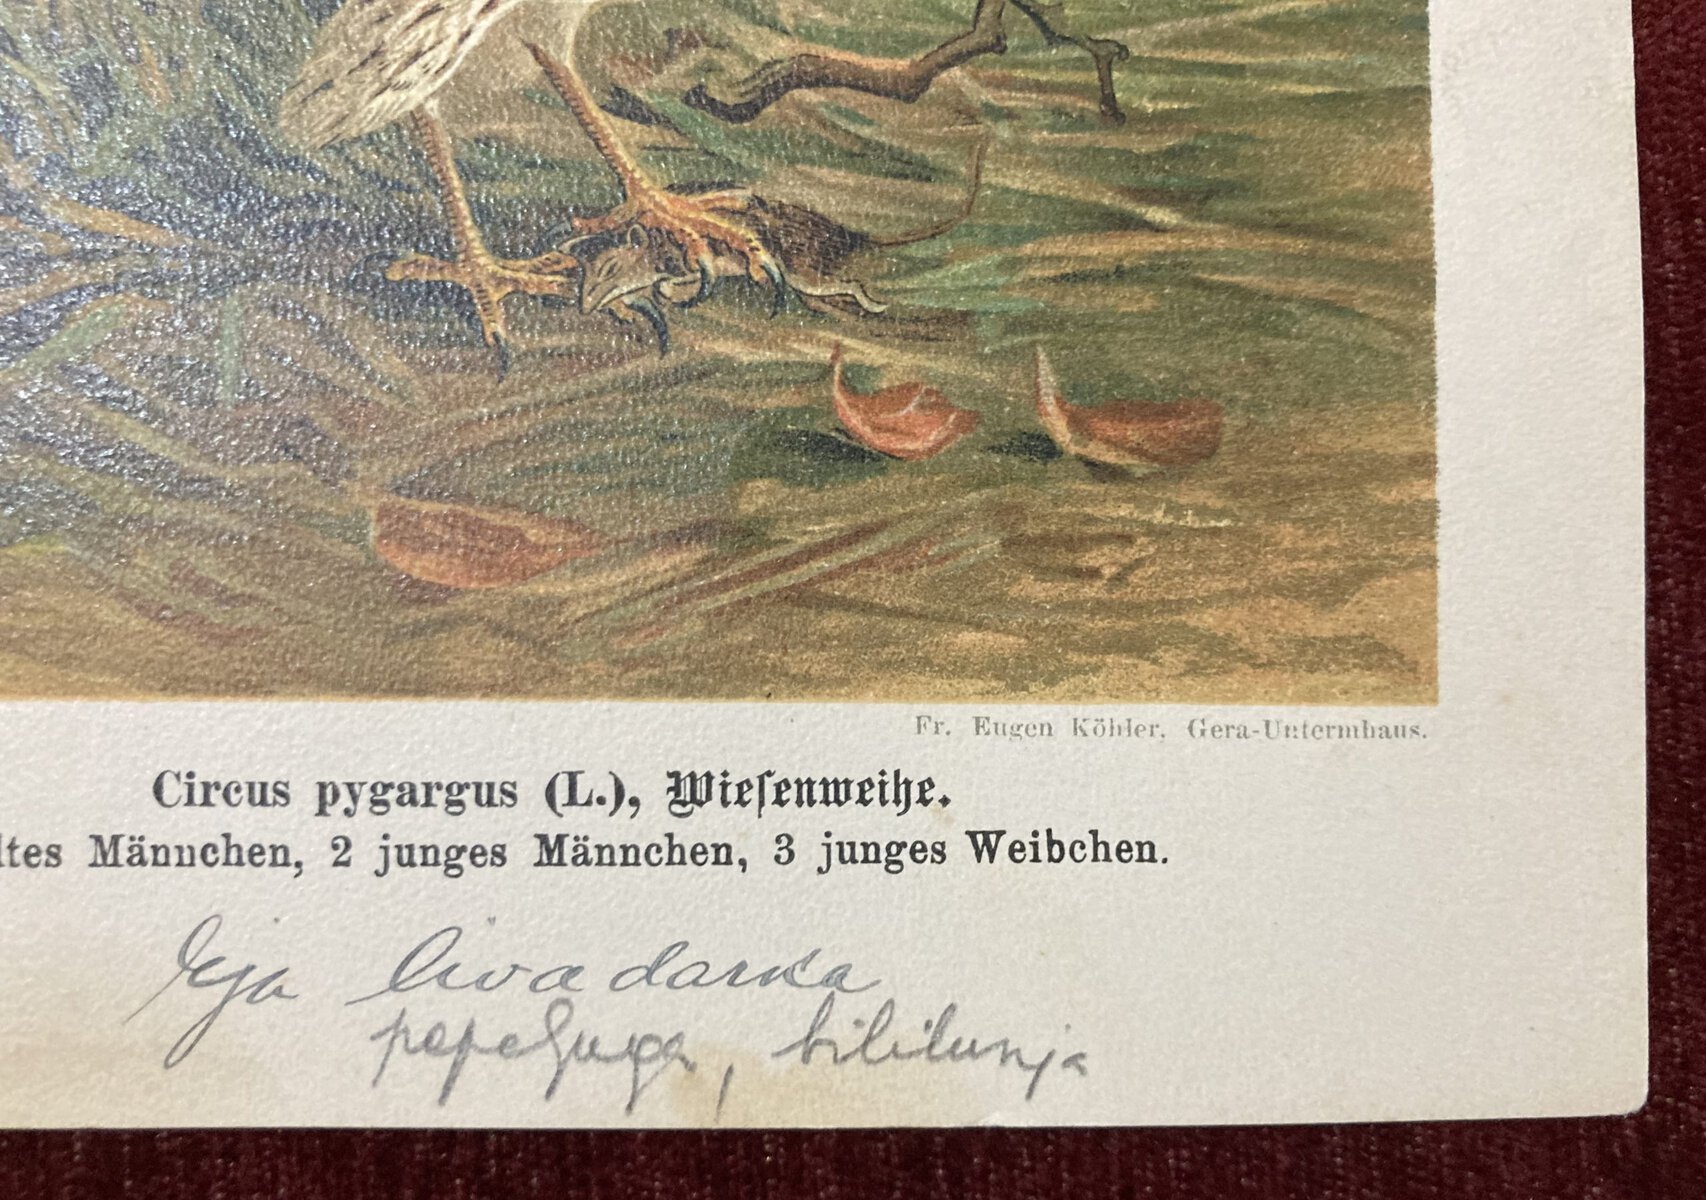 Fr. Eugen Köhler, Gera-Untermhaus.
Circus pygargus (L.), Wieſenweihe.
ltes Männchen, 2 junges Männchen, 3 junges Weibchen.
Eja livadarka
pepeljuga,